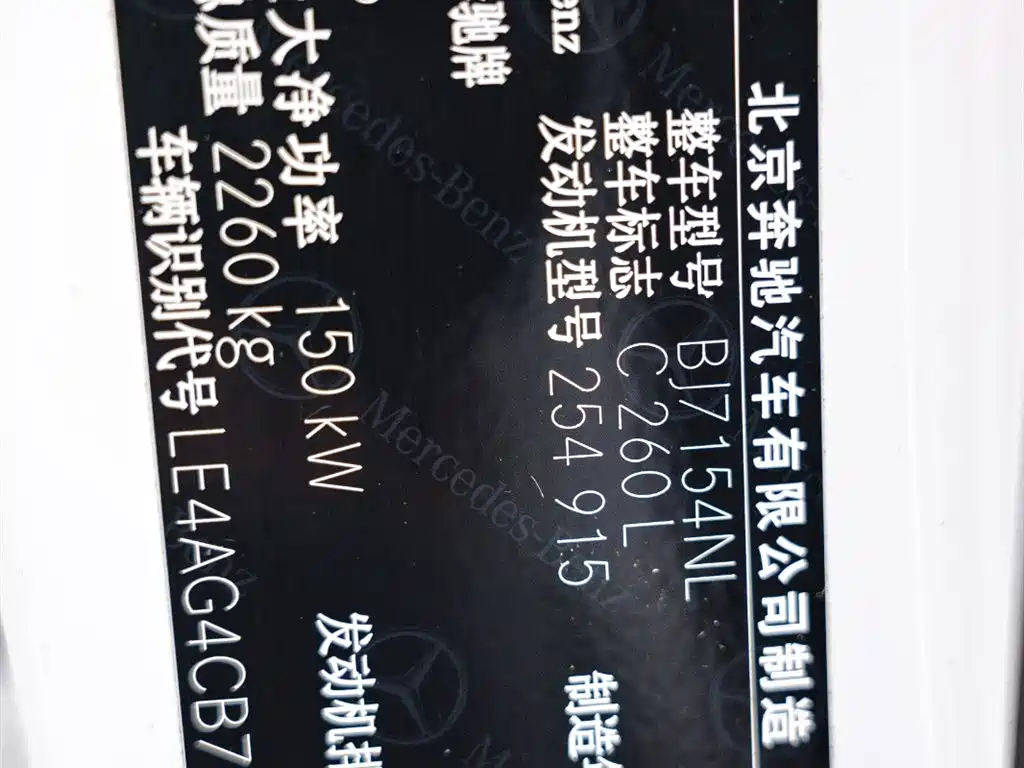 北京奔驰汽车有限公司制造
整车型号 BJ7154NL
整车标志 C 260 L
发动机型号 254 915 制造
Benz
驰牌
大净功率 150 kW 发动机排
质量 2260kg
车辆识别代号 LE4AG4CB7
Mercedes-Benz
Mercedes-Benz